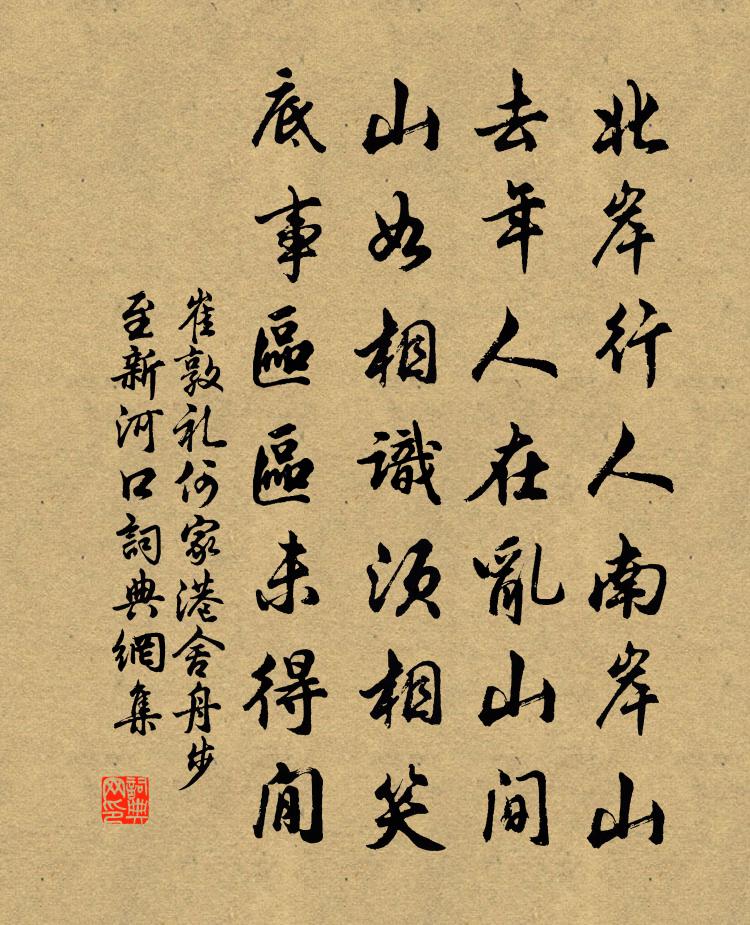 北岸行人南岸山
去年人在亂山間
山如相識須相笑
底事區區未得閒
崔敦礼何家港舍舟步
至新河口詞典網集
詞典网印